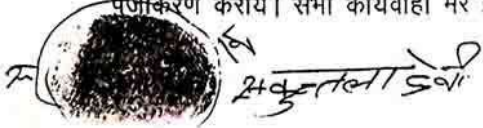 पंजीकरण कराये। सभी कार्यवाही मेरे
शकुन्तला देवी